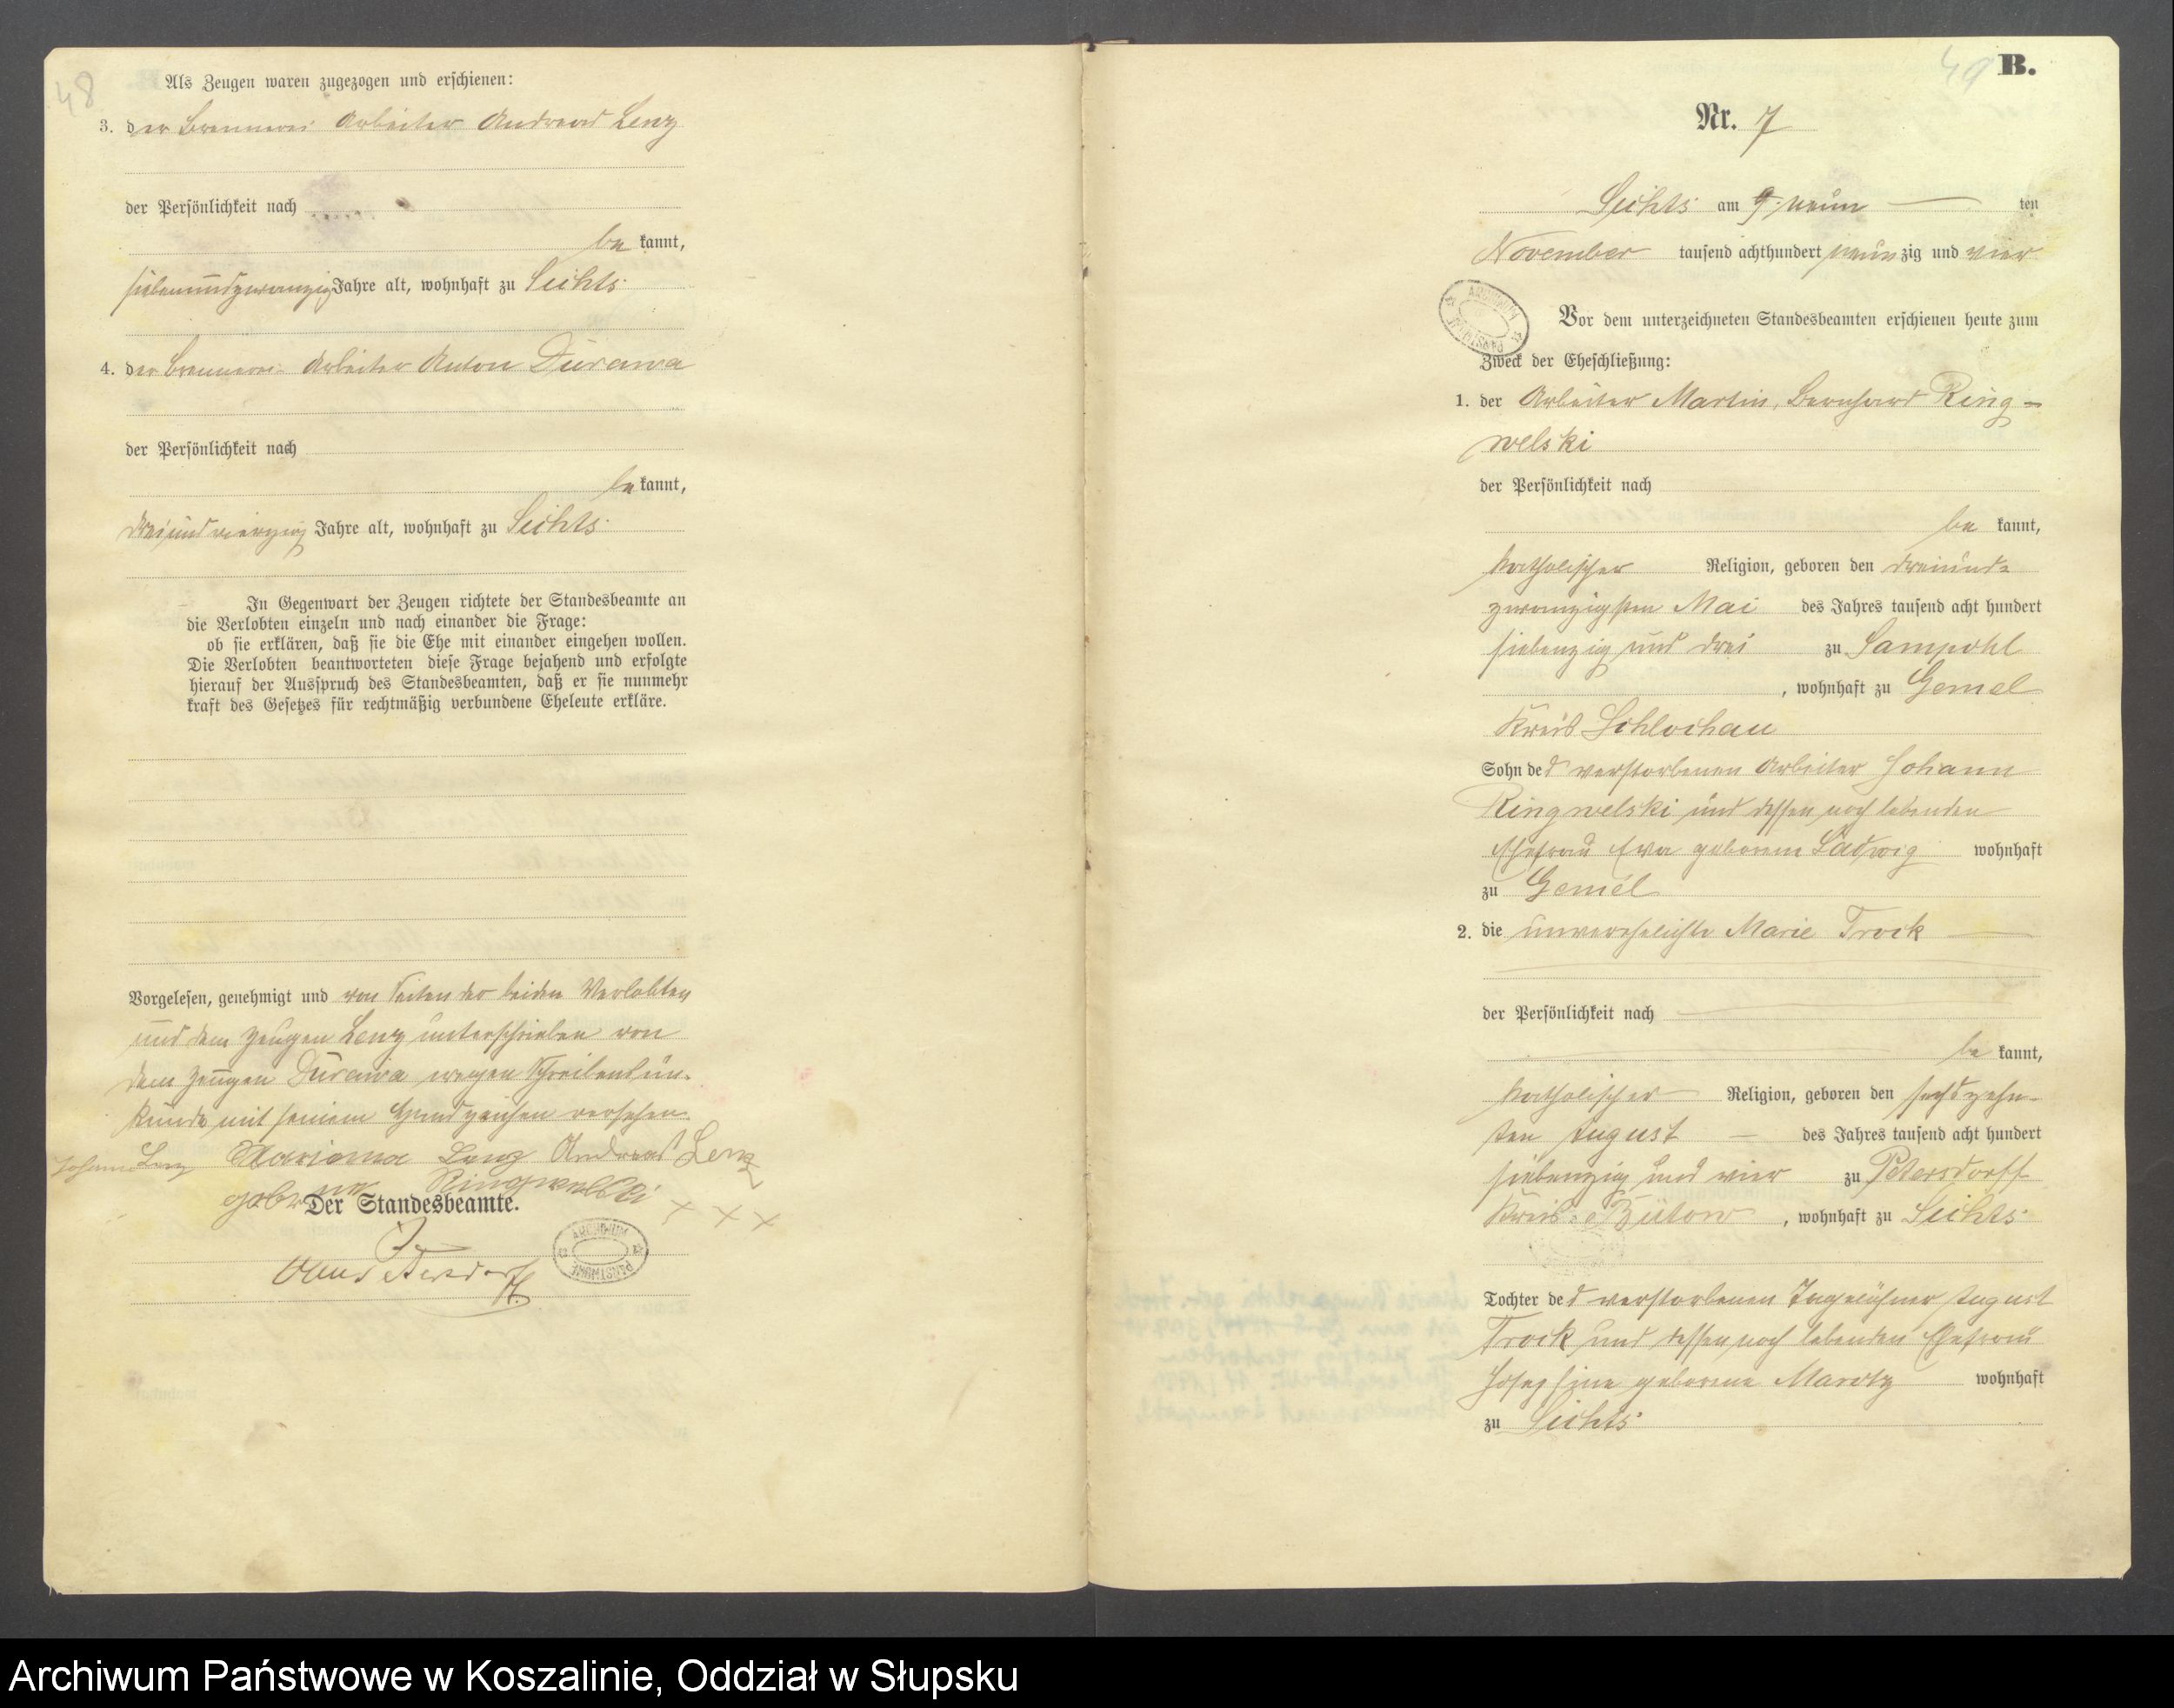 48
Als Zeugen waren zugezogen und erschienen:
3. der Brennerei Arbeiter Andreas Lenz
der Persönlichkeit nach
be kannt,
siebenundzwanzig Jahre alt, wohnhaft zu
4. der Brennerei Arbeiter Anton Durawa
der Persönlichkeit nach
be kannt,
dreiundvierzig Jahre alt, wohnhaft zu
In Gegenwart der Zeugen richtete der Standesbeamte an
die Verlobten einzeln und nach einander die Frage:
ob sie erklären, daß sie die Ehe mit einander eingehen wollen.
Die Verlobten beantworteten diese Frage bejahend und erfolgte
hierauf der Ausspruch des Standesbeamten, daß er sie nunmehr
kraft des Gesetzes für rechtmäßig verbundene Eheleute erkläre.
Vorgelesen, genehmigt und von Seiten der beiden Verlobten
und dem Zeugen Lenz unterschrieben von
dem Zeugen Durawa wegen Schreibensun-
kunde mit seinem Handzeichen versehen.
Johann Lenz Marianna Lenz Andreas Lenz
Ringwelski + + +
Der Standesbeamte.
ARCHIWUM PAŃSTWOWE
49 B.
Nr. 7
am 9. neun ten
November tausend achthundert neun zig und vier
ARCHIWUM PAŃSTWOWE
Vor dem unterzeichneten Standesbeamten erschienen heute zum
Zweck der Eheschließung:
1. der Arbeiter Martin, Bernhard Ring-
welski
der Persönlichkeit nach
be kannt,
katholischer Religion, geboren den dreiund-
zwanzigsten Mai des Jahres tausend acht hundert
siebenzig und drei zu Sampohl
, wohnhaft zu Gemel
Kreis Schlochau
Sohn des verstorbenen Arbeiter Johann
Ringwelski und dessen noch lebenden
Ehefrau Eva geborene wohnhaft
zu Gemel
2. die unverehelichte Marie Trock
der Persönlichkeit nach
be kannt,
katholischer Religion, geboren den sechszehn-
ten August des Jahres tausend acht hundert
siebenzig und vier zu Petersdorff
Kreis Bütow, wohnhaft zu
Tochter des verstorbenen Tagelöhner August
Trock und dessen noch lebenden Ehefrau
Josephine geborene wohnhaft
zu
Archiwum Państwowe w Koszalinie, Oddział w Słupsku